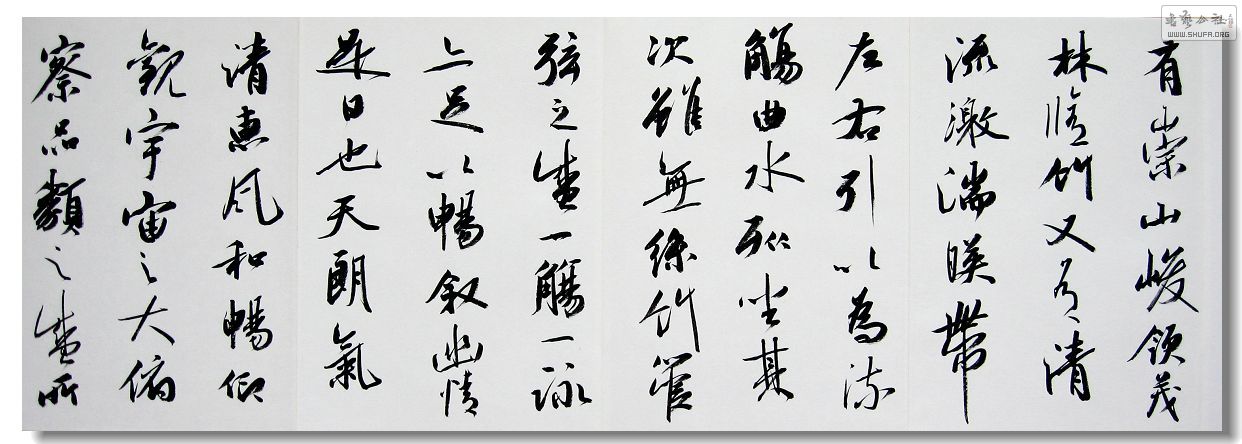 有崇山峻領茂
林脩竹又有清
流激湍暎帶
左右引以為流
觴曲水列坐其
次雖無絲竹管
弦之盛一觴一詠
亦足以暢叙幽情
是日也天朗氣
清惠風和暢仰
觀宇宙之大俯
察品類之盛所
WWW.SHUFA.ORG